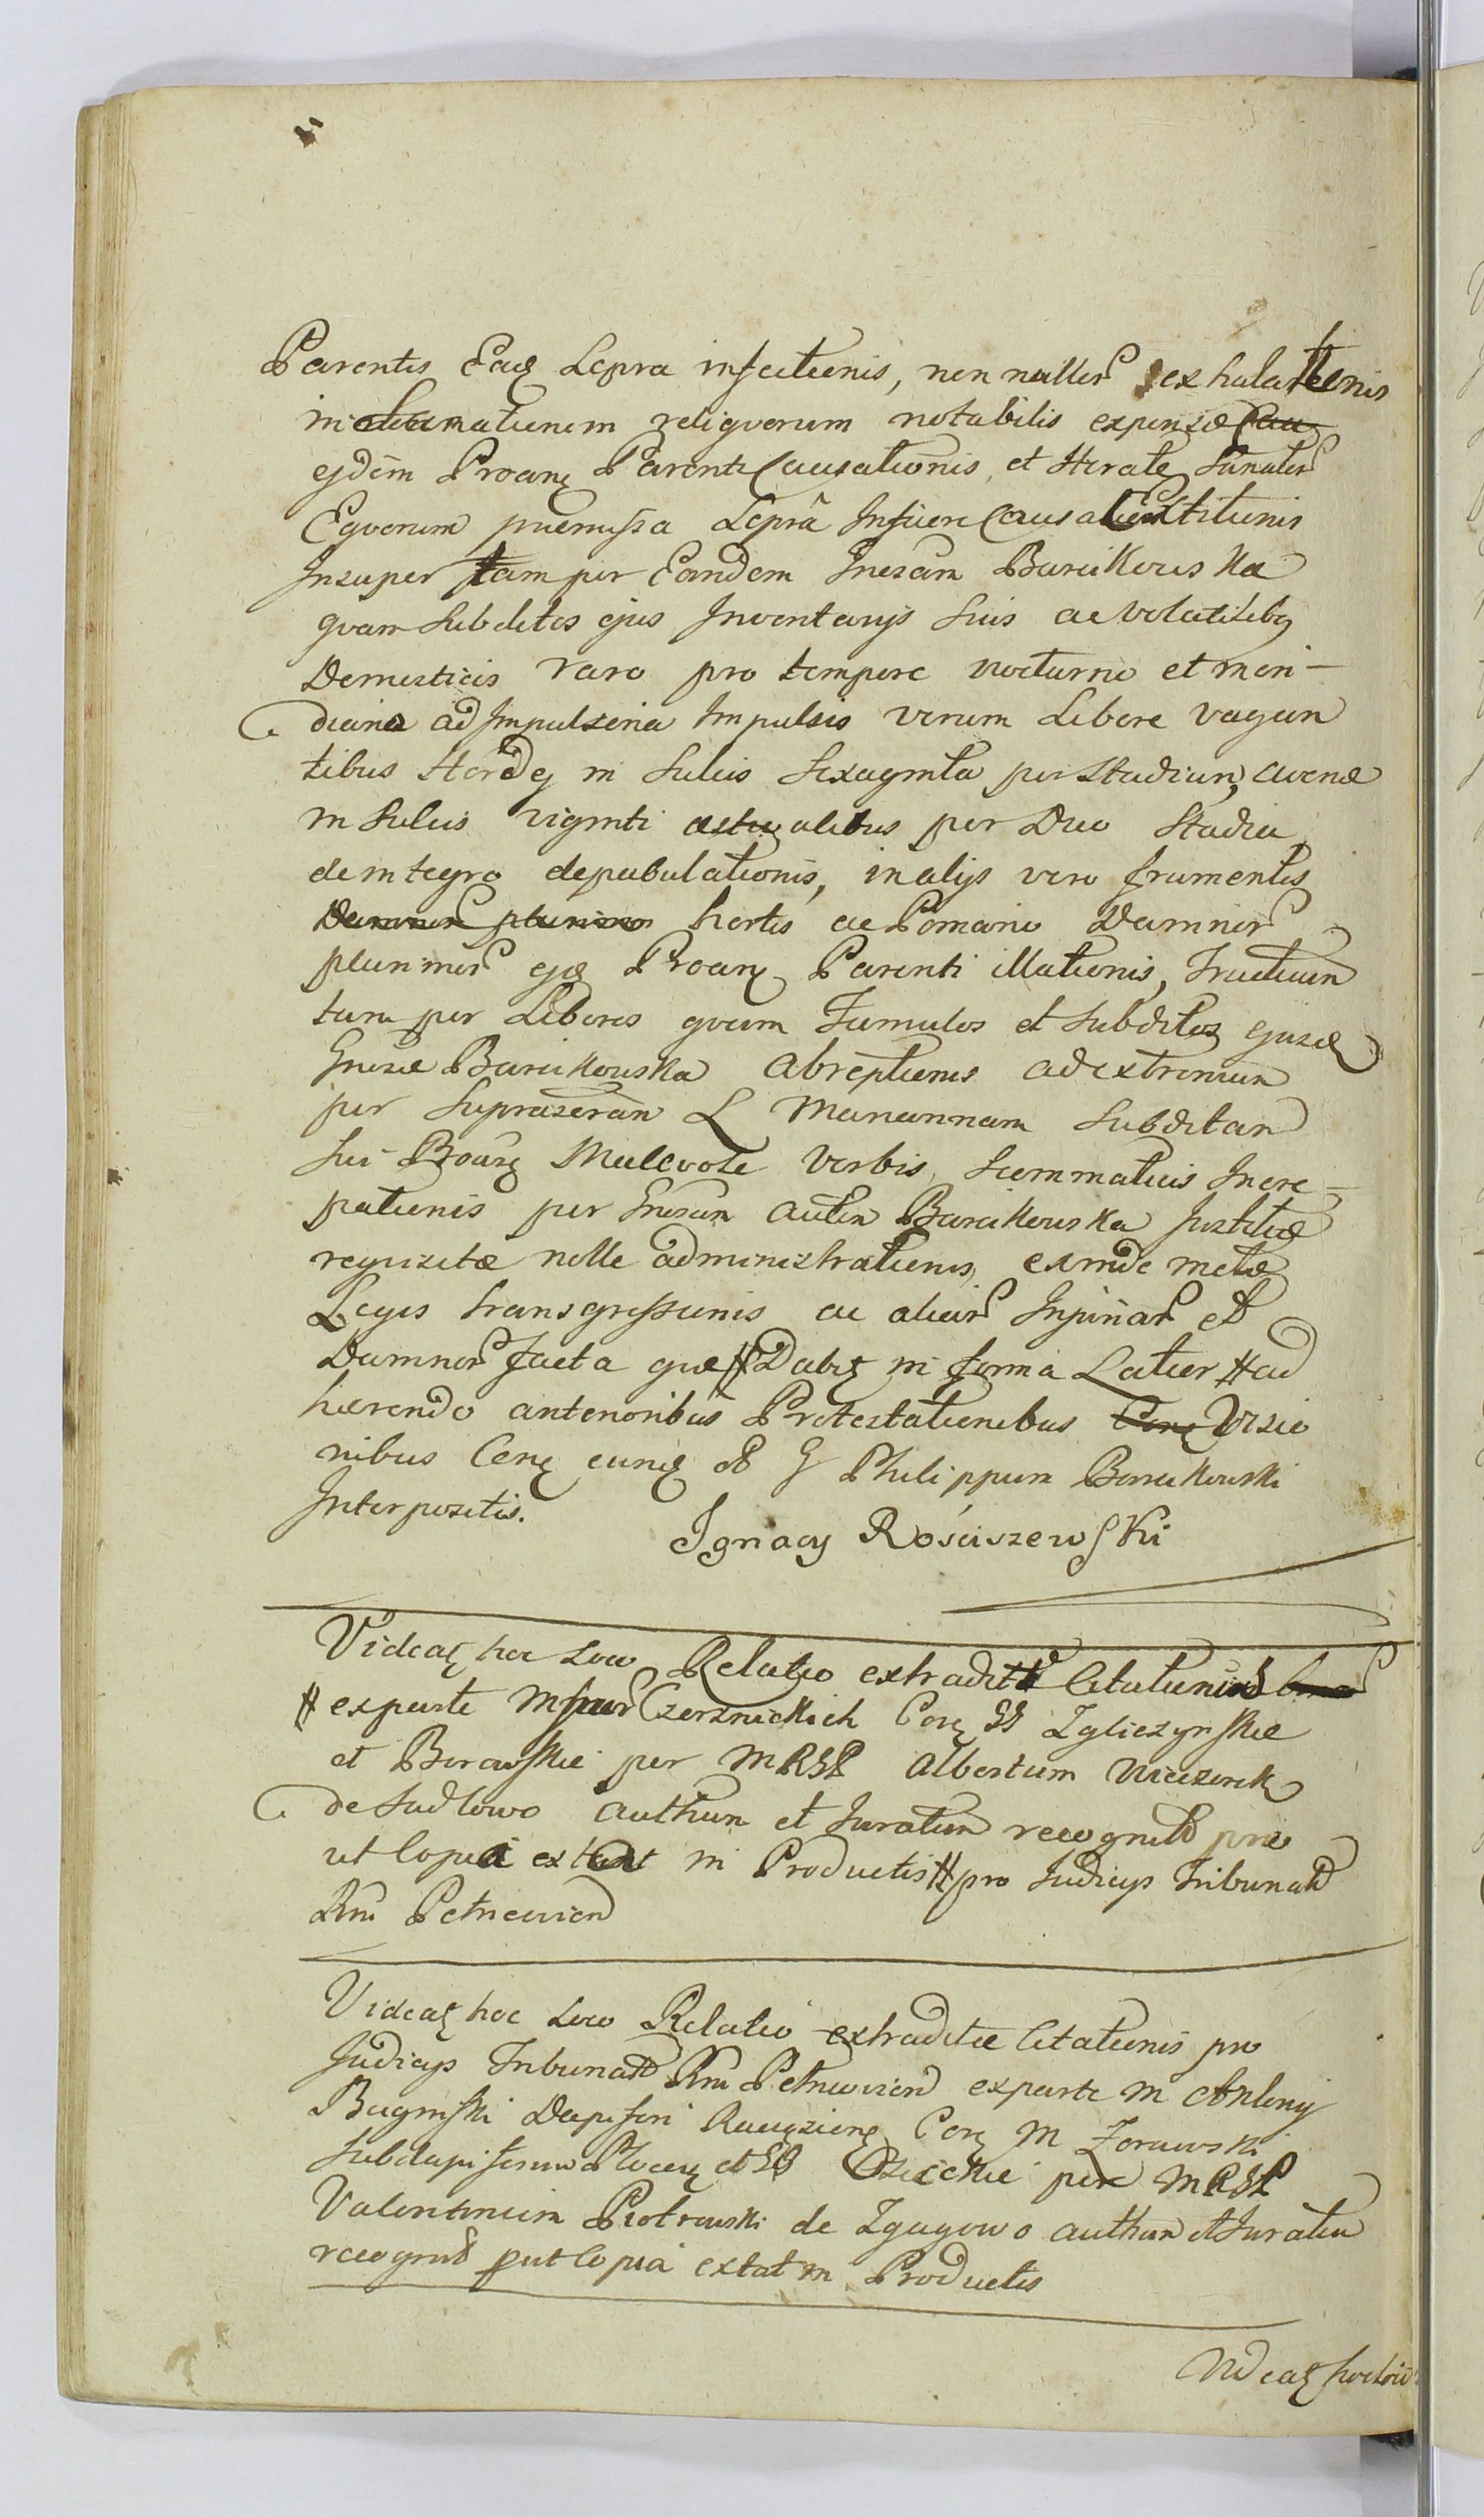 Parentis Eaq Lepra infectionis, non nullor exhalationis
in reliqvorum notabilis expensæ
ejdem Proang Parenti Causationis, et Iterate
Eqvorum præmissa Leprâ Causa Extitionis
Insuper tam per Eandem Gnesam Barcikowska
qvam Subditos ejus Inventarijs Suis ac volatilibq
Domesticis raro pro tempore nocturno et meri-
diano ad Impulsoria Impulsis verum Libere vagan
tibus Hordej in Sulcis Sexaginta per Stadium, avenæ
in Sulcis viginti alibus per Duo Stadia
de integro depabulationis, in alijs vero frumentis
Damnor plurimor hortis ac Pomario Damnor
plurimor ejq Proang Parenti illationis, Fructuum
tum per Liberos qvam Famulos et Subditos ejusd
Gnesæ Barcikowska abreptionis ad extremum
per Suprascram L Mariannam Subditam
Sui Proang Malevole verbis Summaticis Incre-
pationis per Gnesam autem Barcikowska Justitiæ
reqvisitæ nolle administrationis, exinde metæ
Legis transgressionis ac aliar Injuriar et
Damnor facta qvæ Dabq in forma Latior # ad
hærendo anterioribus Protestationibus Visio
nibus Cong eund et G Philippum Barcikowski
Interpositis.
Ignacy Rościszewski
Videaq hoc Loco Relatio extradit Citationis
# ex parte Mfcor Czerznickich Cong GG Zgliczynskie
et Borawskie per MRGP Albertum Wieczorek
de Sudłowo authum et Juratum recognit prno
ut Copia extat in Productis # pro Judicijs Tribunal
Rni Petricovien
Videaq hoc Loco Relatio extraditæ Citationis pro
Judicijs Tribunal Rni Petricovien ex parte M Antonij
Baginski Dapiferi Cong M Zorawski
Subdapiferum Plocen et GG per MRGP
Valentinum Piotrowski de Zgagowo authum et Juratum
recognit put Copia extat in Productis
Videaq hoc loco